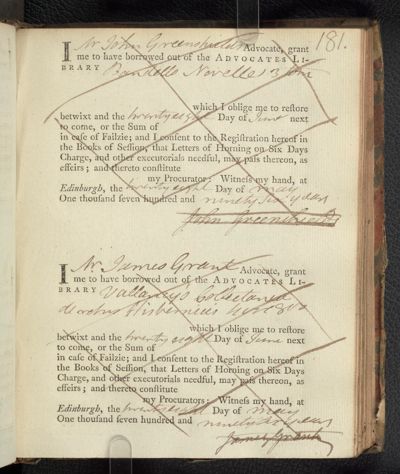 181.
I Mr John Greenshields Advocate, grant
me to have borrowed out of the ADVOCATES LI-
BRARY Bandello Novelle 3
which I oblige me to reſtore
betwixt and the twenty eight Day of June next
to come, or the Sum of
in caſe of Failzie; and I conſent to the Regiſtration hereof in
the Books of Seſſion, that Letters of Horning on Six Days
Charge, and other executorials needful, may paſs thereon, as
effeirs; and thereto conſtitute
my Procurator: Witneſs my hand, at
Edinburgh, the twenty eight Day of may
One thouſand ſeven hundred and ninety six years
John Greenshields
I Mr James Grant Advocate, grant
me to have borrowed out of the ADVOCATES LI-
BRARY Vallancys Collectanea
de rebus Hibernicis
which I oblige me to reſtore
betwixt and the twenty eight Day of June next
to come, or the Sum of
in caſe of Failzie; and I conſent to the Regiſtration hereof in
the Books of Seſſion, that Letters of Horning on Six Days
Charge, and other executorials needful, may paſs thereon, as
effeirs; and thereto conſtitute
my Procurator: Witneſs my hand, at
Edinburgh, the twenty eight Day of may
One thouſand ſeven hundred and ninety six years
James Grant